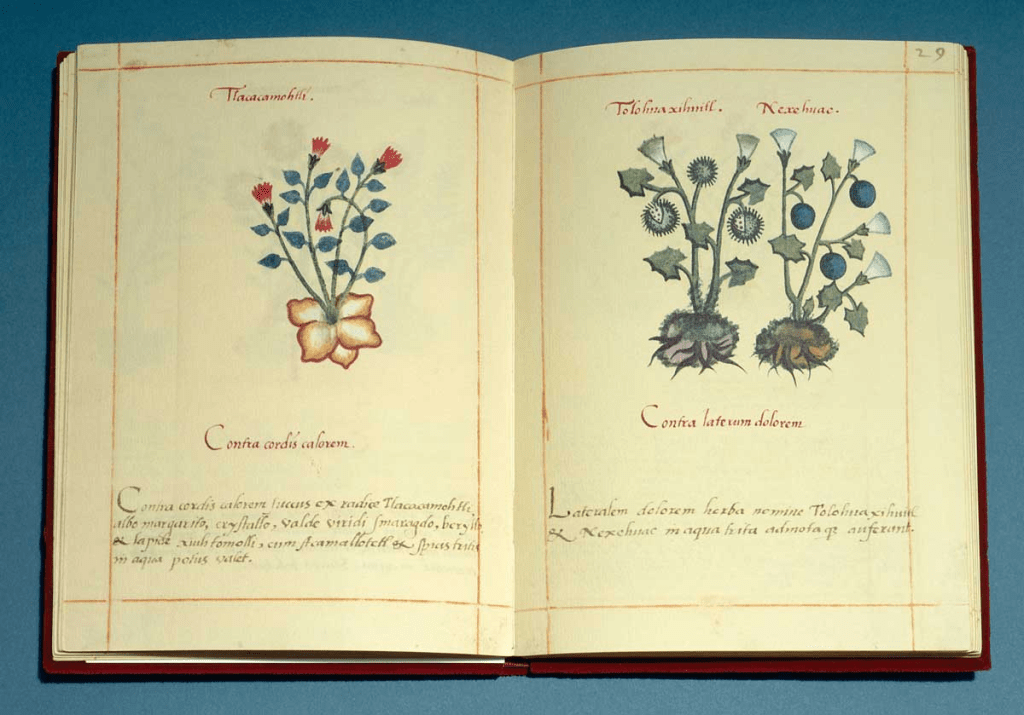 Tlacacamohtli.
Contra cordis calorem.
Contra cordis calorem succus ex radice Tlacacamohtli,
albo margarito, crystallo, valde viridi smaragdo, beryllo
& lapide xiuhtomolli, cum tritis
in aqua potus valet.
29
Tolohuaxihuitl. Nexehuac.
Contra laterum dolorem
Lateralem dolorem herbæ nomine Tolohuaxihuitl
& Nexehuac in aqua tritæ admotæque auferunt.